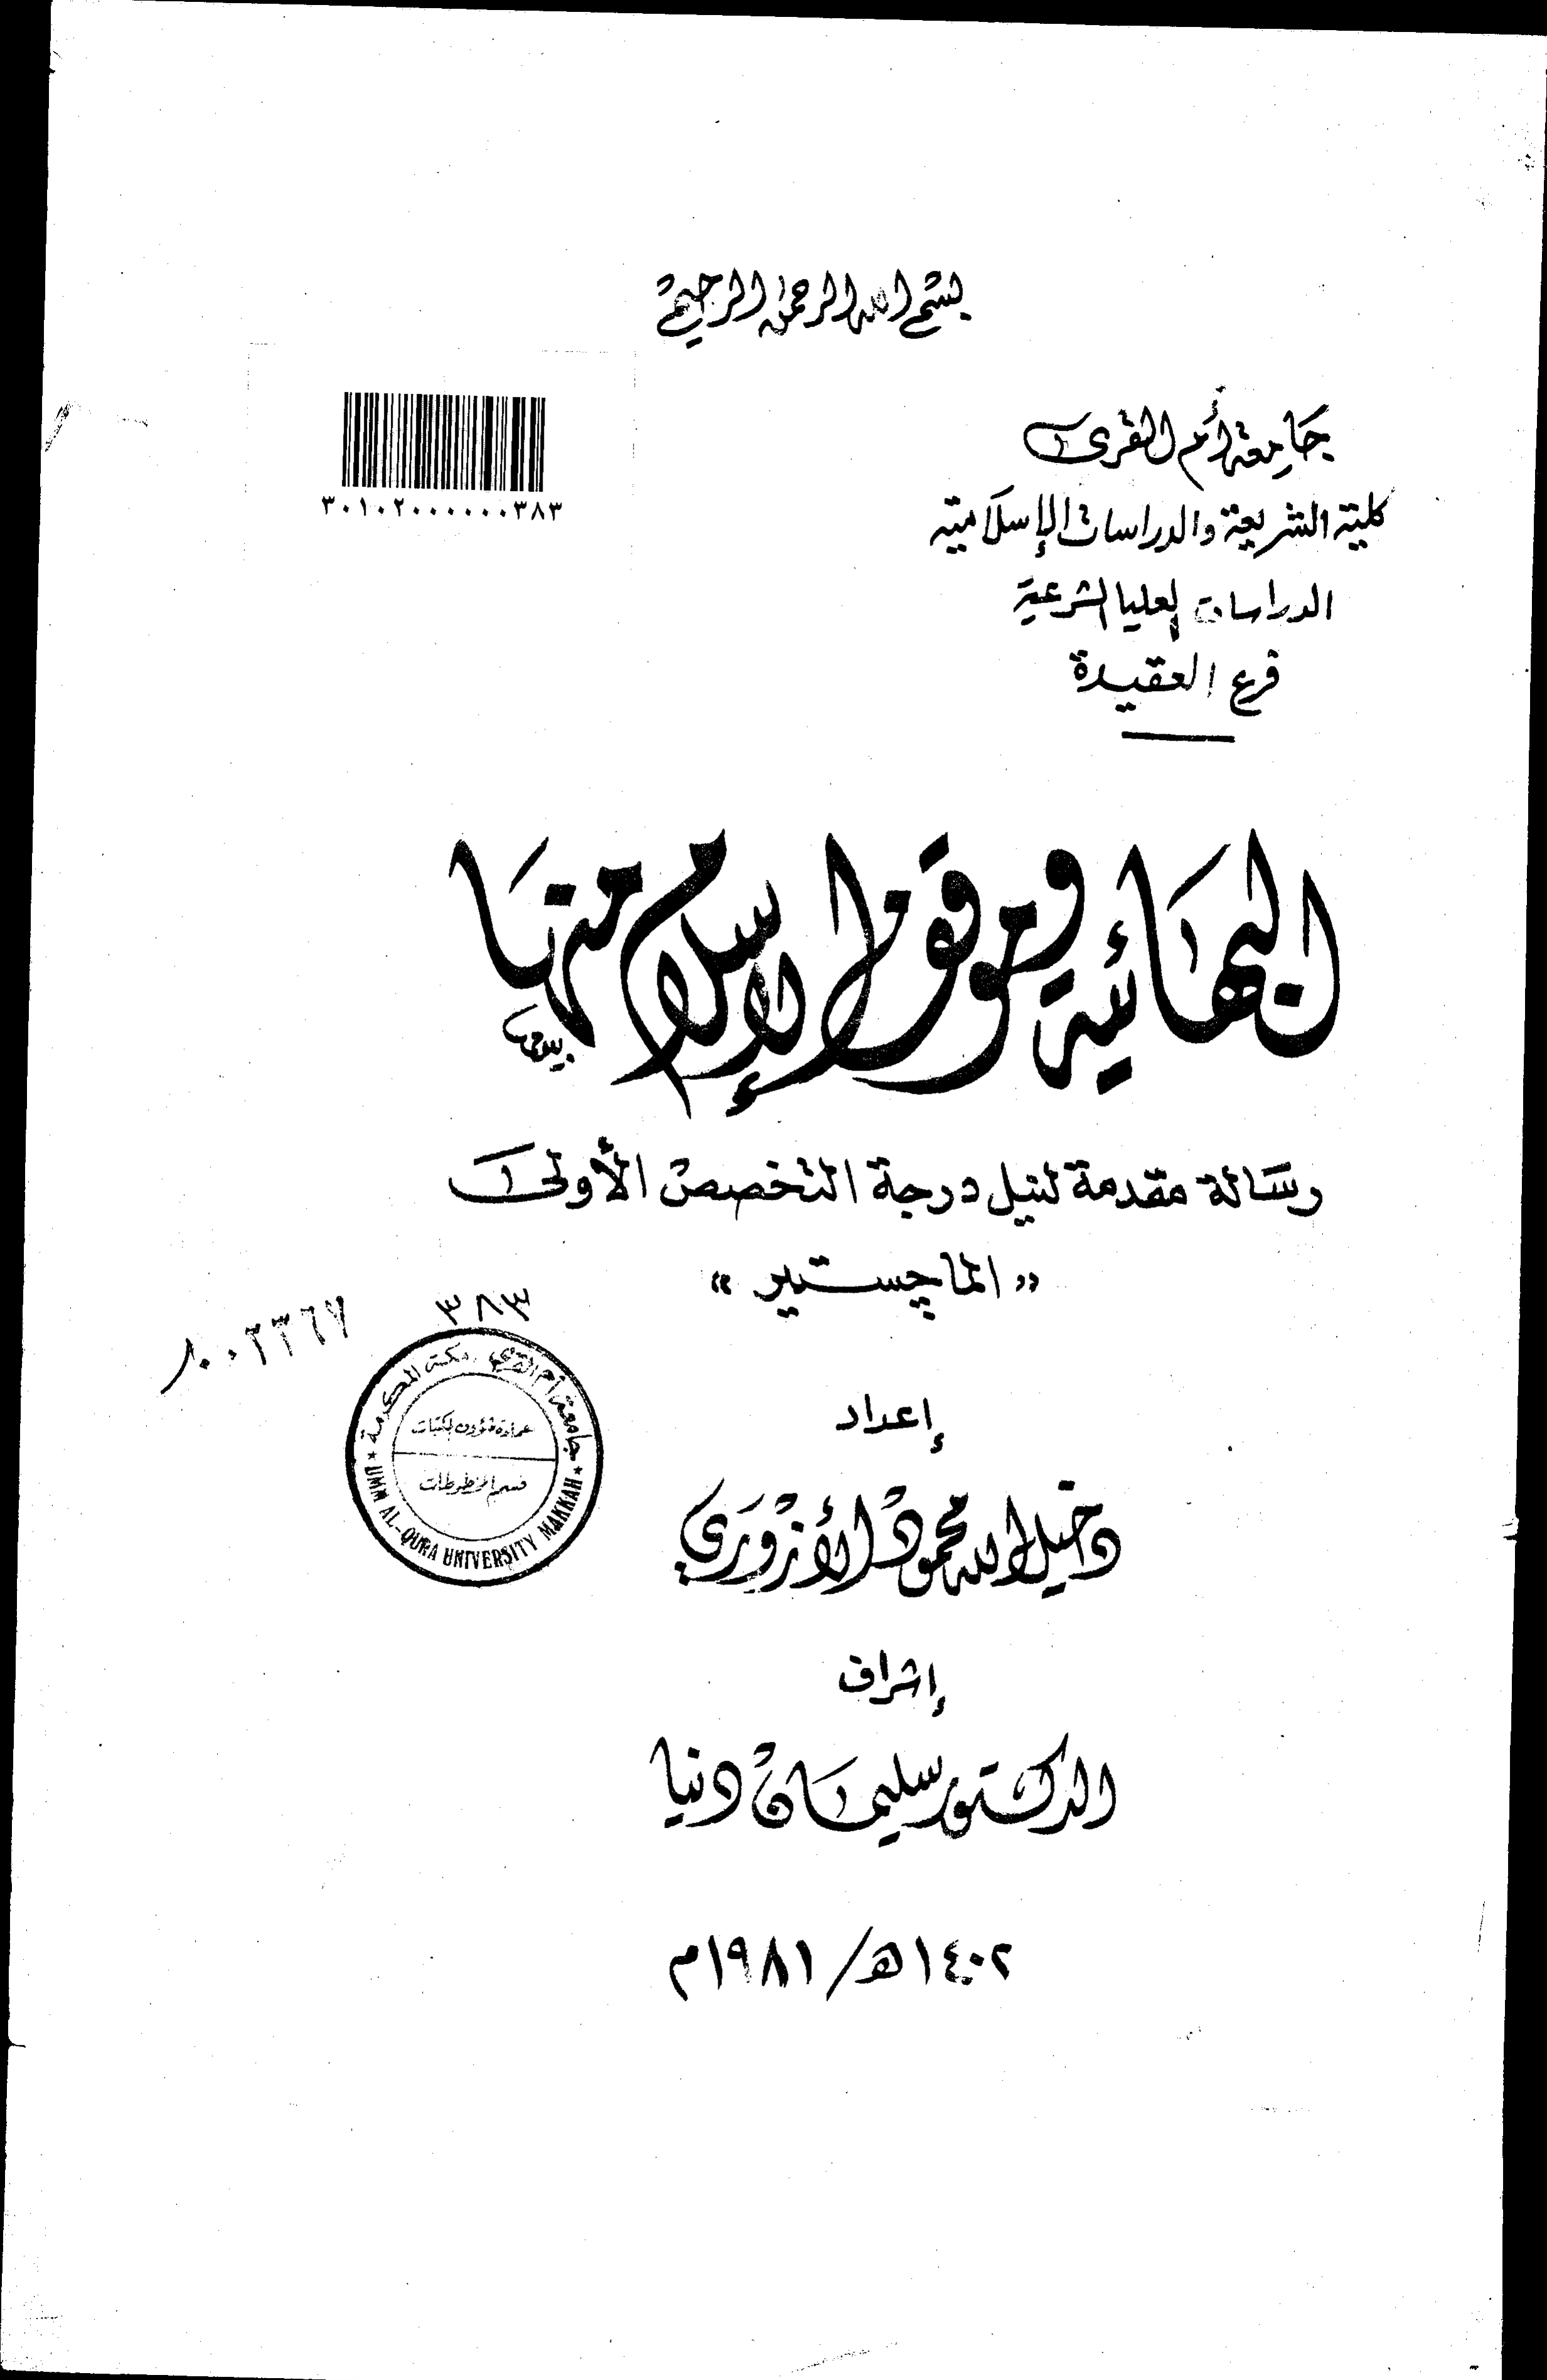 بسم الله الرحمن الرحيم
جامعة أم القرى
كلية الشريعة والدراسات الإسلامية
الدراسات العليا الشرعية
فرع العقيدة
٣٠١٠٢٠٠٠٠٠٠٣٨٣
البهائية وموقف الإسلام منها
رسالة مقدمة لنيل درجة التخصص الأولى
«الماجستير»
٣٨٣
٨٠٠٢٣٦٧
جامعة أم القرى مكة المكرمة
عمادة شؤون المكتبات
قسم المخطوطات
UMM AL-QURA UNIVERSITY MAKKAH
إعداد
دخيل الله محمود الأزوري
إشراف
الدكتور سليمان دنيا
١٤٠٢هـ/١٩٨١م